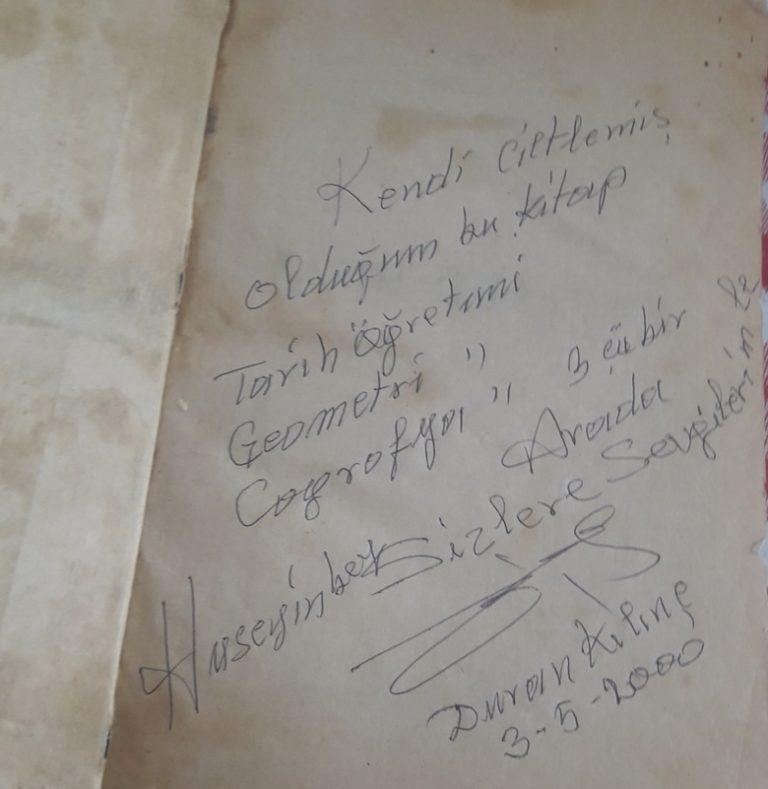 Kendi Ciltlemiş
olduğum bu kitap
Tarih Öğretimi
Geometri "
Coğrofya " 3 çü bir
Arada
Huseyin bey Sizlere Sevgilerimle
Duran Kılınç
3-5-2000